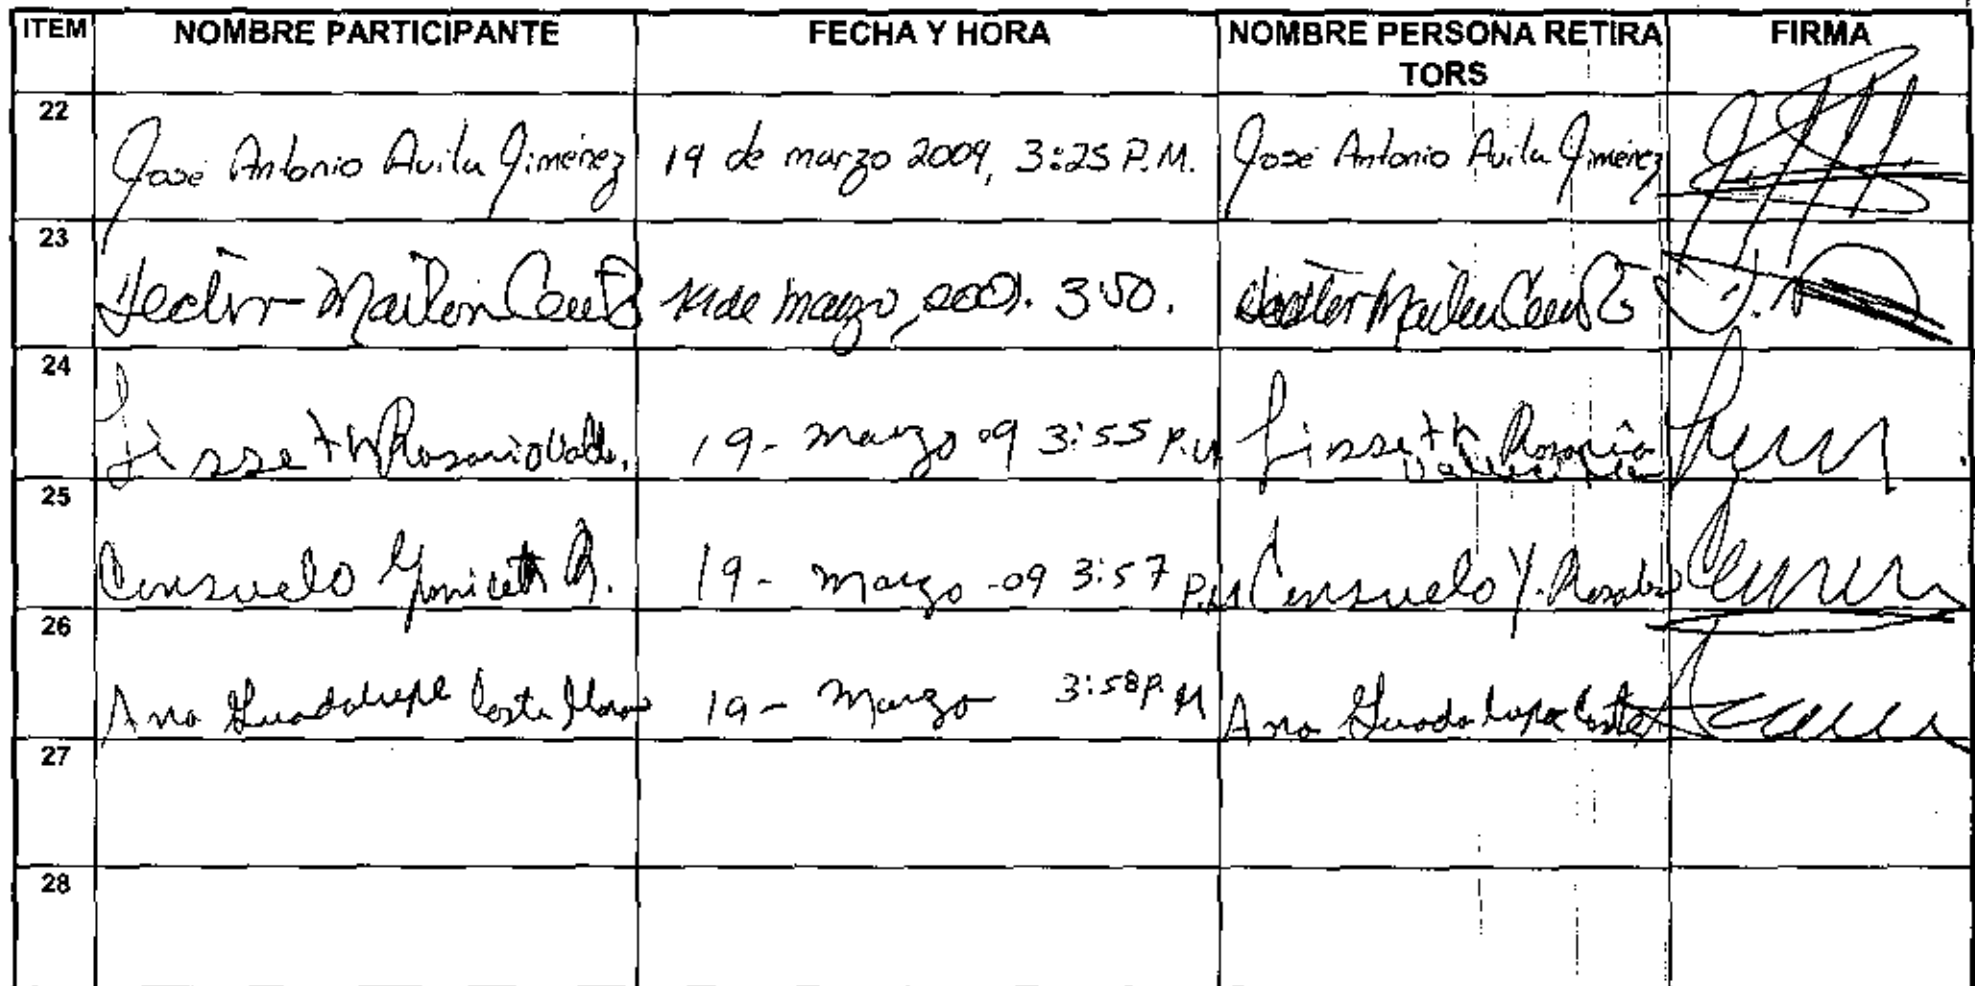 ITEM NOMBRE PARTICIPANTE FECHA Y HORA NOMBRE PERSONA RETIRA FIRMA
TORS
22
José Antonio Avila Jiménez 19 de marzo 2009, 3:25 P.M. José Antonio Avila Jiménez
23
Hector Marlon 19 de marzo, 2009. 3:50. Hector Marlon
24
Lisseth Rosario 19- marzo 09 3:55 P.M Lisseth Rosario
25
Consuelo R. 19- marzo -09 3:57 P.M Consuelo Y. Rosales
26
Ana Guadalupe 19- marzo 3:58 P.M Ana Guadalupe
27
28